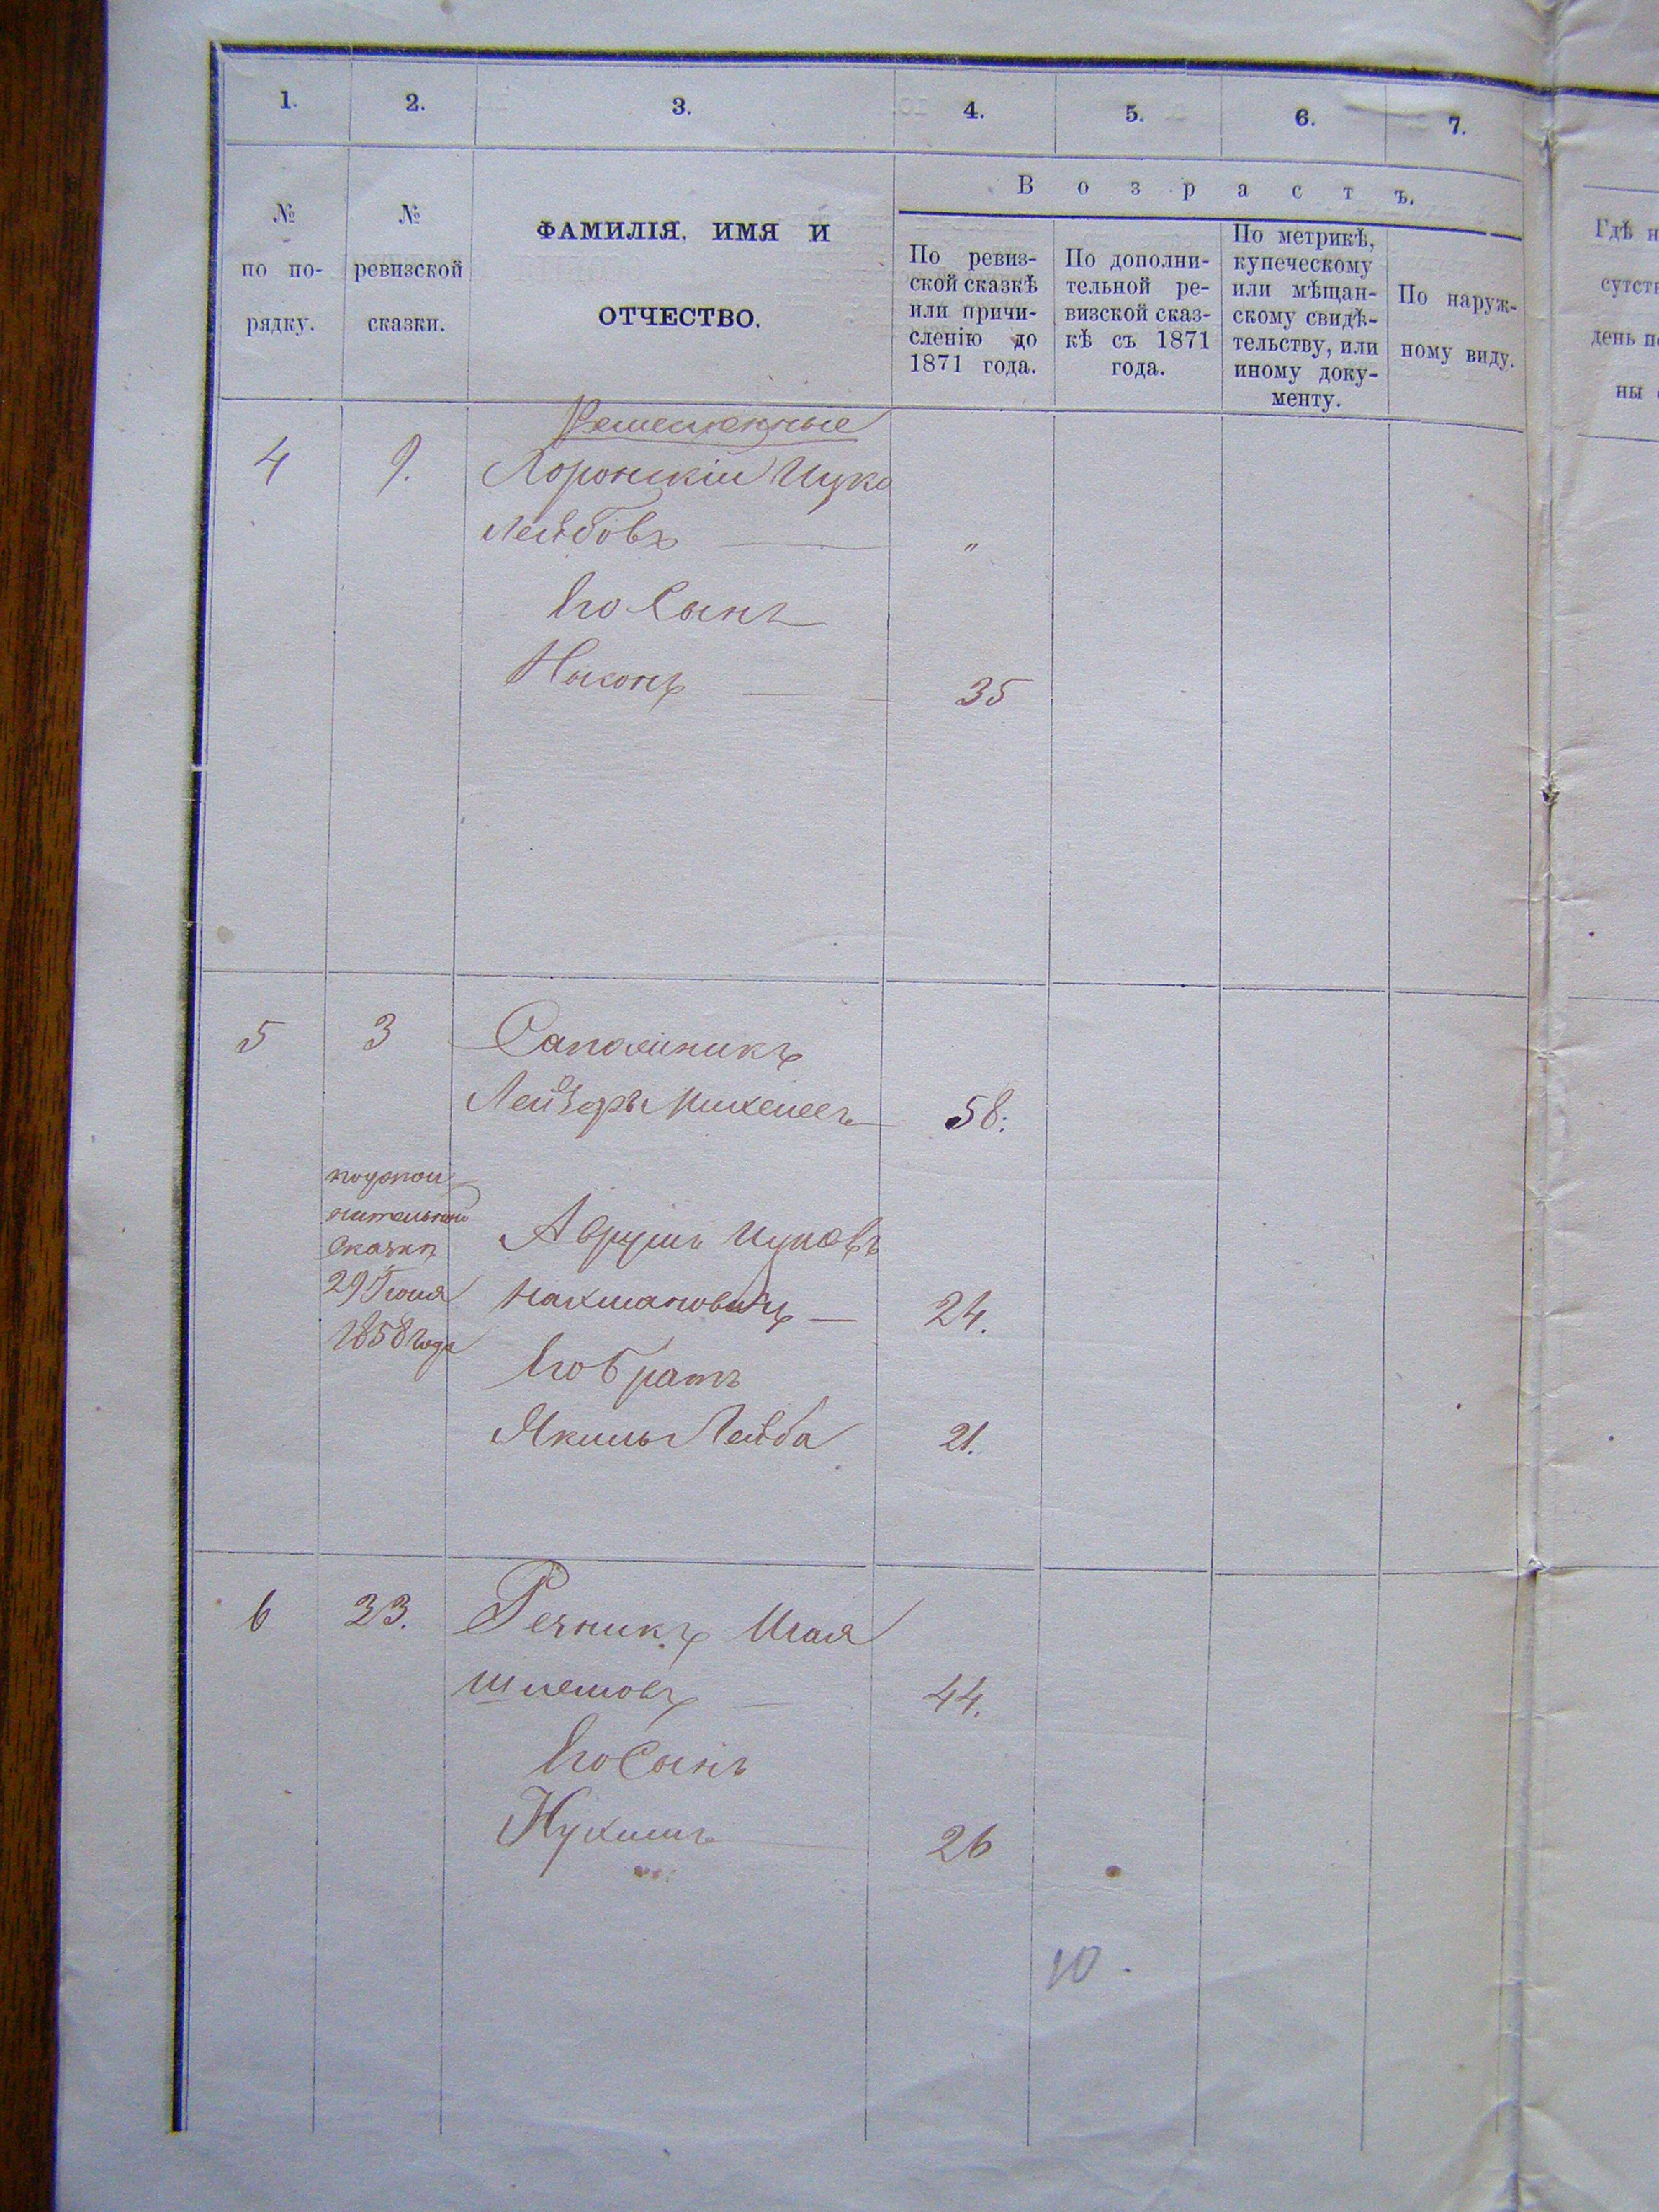 1.
2.
3.
4.
5.
6.
7.
№ по по- рядку.
№ ревизской сказки.
ФАМИЛІЯ, ИМЯ И
ОТЧЕСТВО.
Возрастъ.
По ревиз-
ской сказкѣ
или причи-
сленію до
1871 года.
По дополни-
тельной ре-
визской сказ-
кѣ съ 1871
года.
По метрикѣ,
купеческому
или мѣщан-
скому свидѣ-
тельству, или
иному доку-
менту.
По наруж-
ному виду.
Гдѣ н
сутст
день п
ны
Ремесленные
4 9. Лоронскій Ицко
Лейбовъ — "
Его Сынъ
35
5 3
Лейзеръ 58.
сказки
29 Іюня
1858 года
Аврумъ Ицковъ
Нахмановичъ — 24.
Его Братъ
Лейба 21.
6 23. Речникъ Шая
Шлемовъ — 44.
Его Сынъ
Нухимъ 26
10.